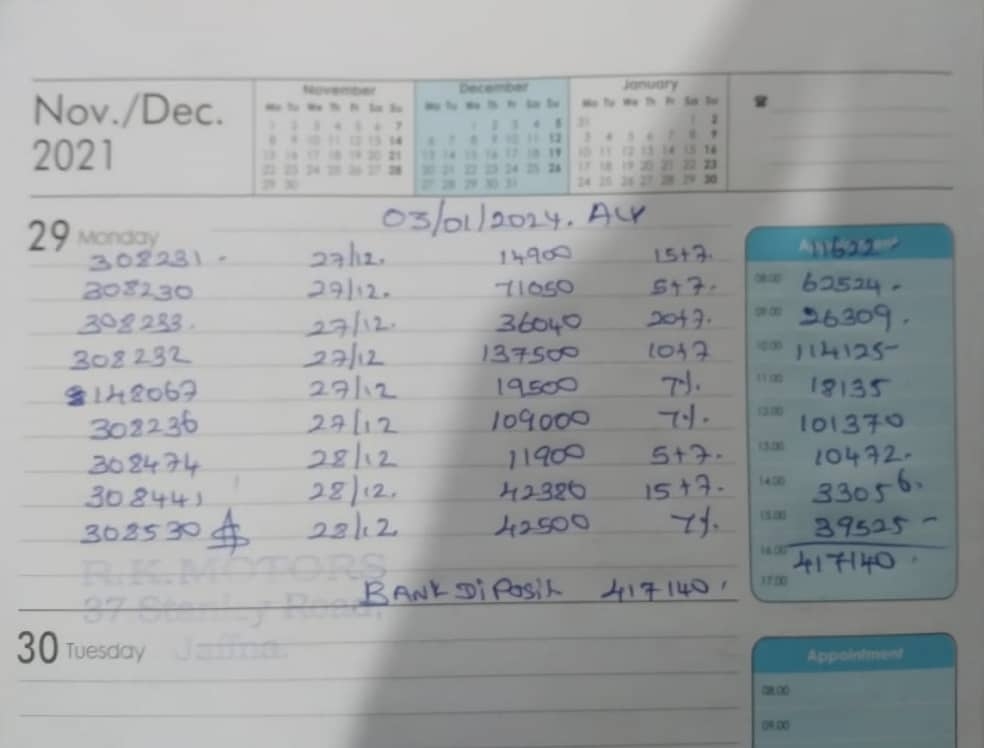 Nov./Dec.
2021
November
Mo Tu We Th Fr Sa Su
1 2 3 4 5 6 7
8 9 10 11 12 13 14
15 16 17 18 19 20 21
22 23 24 25 26 27 28
29 30
December
Mo Tu We Th Fr Sa Su
1 2 3 4 5
6 7 8 9 10 11 12
13 14 15 16 17 18 19
20 21 22 23 24 25 26
27 28 29 30 31
January
Mo Tu We Th Fr Sa Su
31 1 2
3 4 5 6 7 8 9
10 11 12 13 14 15 16
17 18 19 20 21 22 23
24 25 26 27 28 29 30
03/01/2024.
29 Monday
308231 - 27/12. 14900 15+7. 11622-
308230 27/12. 71050 5+7. 08.00 62524.
308233. 27/12. 36040 20+7. 09.00 26309.
308232 27/12 137500 10+7 10.00 114125-
148067 27/12 19500 7%. 11.00 18135
308236 27/12 109000 7%. 12.00 101370
308474 28/12 11900 5+7. 13.00 10472.
308441 28/12. 42380 15+7. 14.00 33056.
308530 28/12 42500 7%. 15.00 39525-
16.00 417140.
R.K.MOTORS
BANK DiPosit 417140. 17.00
37 Stanley Road,
Jaffna.
30 Tuesday
Appointment
08.00
09.00